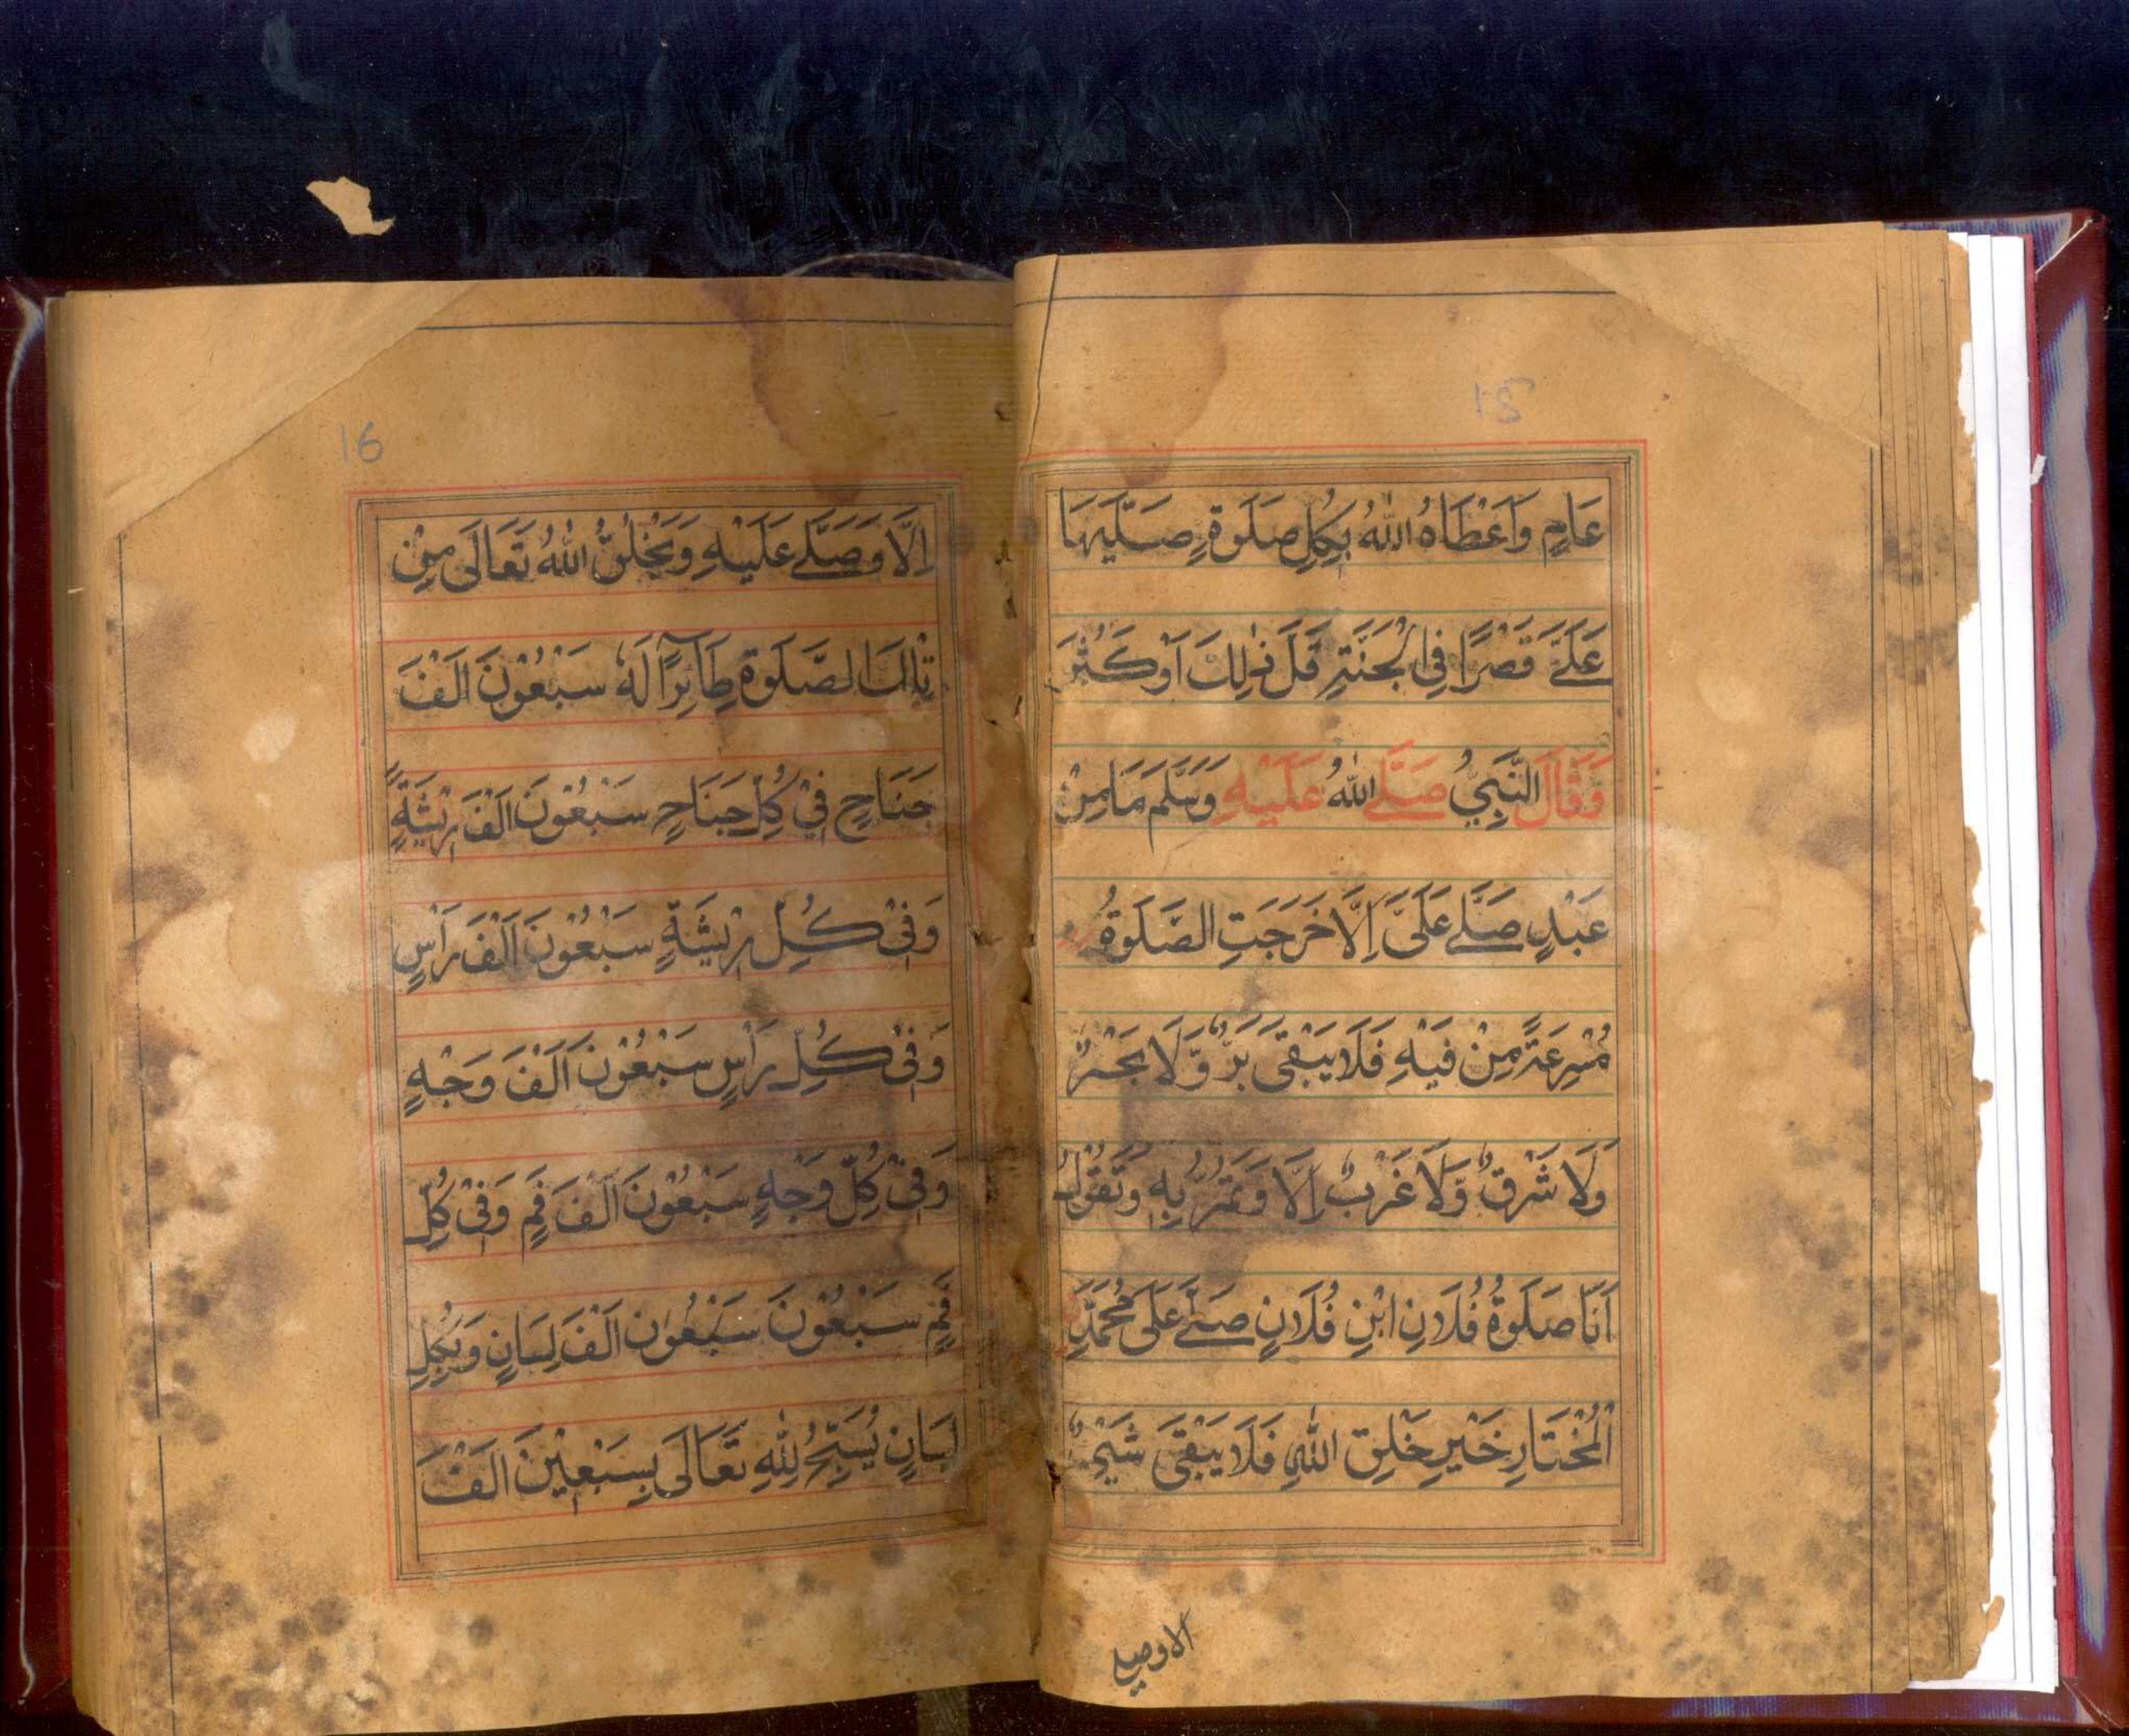 15
عَامٍ وَاَعْطَاهُ اللّٰهُ بِكُلِّ صَلٰوةٍ صَلَّيَهَا
عَلَيَّ قَصْرًا فِي الْجَنَّةِ قَلَّ ذٰلِكَ اَوْ كَثُرَ
وَقَالَ النَّبِيُّ صَلَّى اللّٰهُ عَلَيْهِ وَسَلَّمَ مَا مِنْ
عَبْدٍ صَلّٰے عَلَىَّ اِلَّا خَرَجَتِ الصَّلٰوةُ
مُسْرِعَةً مِنْ فِيْهِ فَلَا يَبْقٰى بَرٌّ وَّلَا بَحْرٌ
وَلَا شَرْقٌ وَّلَا غَرْبٌ اِلَّا وَتَمُرُّ بِهٖ وَتَقُوْلُ
اَنَا صَلٰوةُ فُلَانِ ابْنِ فُلَانٍ صَلّٰے عَلٰى مُحَمَّدِ
الْمُخْتَارِ خَيْرِ خَلْقِ اللّٰهِ فَلَا يَبْقٰى شَيْءٌ
الا وصلے
16
اِلَّا وَصَلّٰے عَلَيْهِ وَيَخْلُقُ اللّٰهُ تَعَالٰى مِنْ
تِلْكَ الصَّلٰوةِ طَآئِرًا لَهٗ سَبْعُوْنَ اَلْفَ
جَنَاحٍ فِيْ كُلِّ جَنَاحٍ سَبْعُوْنَ اَلْفَ رِيْشَةٍ
وَفِيْ كُلِّ رِيْشَةٍ سَبْعُوْنَ اَلْفَ رَأْسٍ
وَفِيْ كُلِّ رَأْسٍ سَبْعُوْنَ اَلْفَ وَجْهٍ
وَفِيْ كُلِّ وَجْهٍ سَبْعُوْنَ اَلْفَ فَمٍ وَفِيْ كُلِّ
فَمٍ سَبْعُوْنَ سَبْعُوْنَ اَلْفَ لِسَانٍ وَبِكُلِّ
لِسَانٍ يُسَبِّحُ لِلّٰهِ تَعَالٰى بِسَبْعِيْنَ اَلْفَ